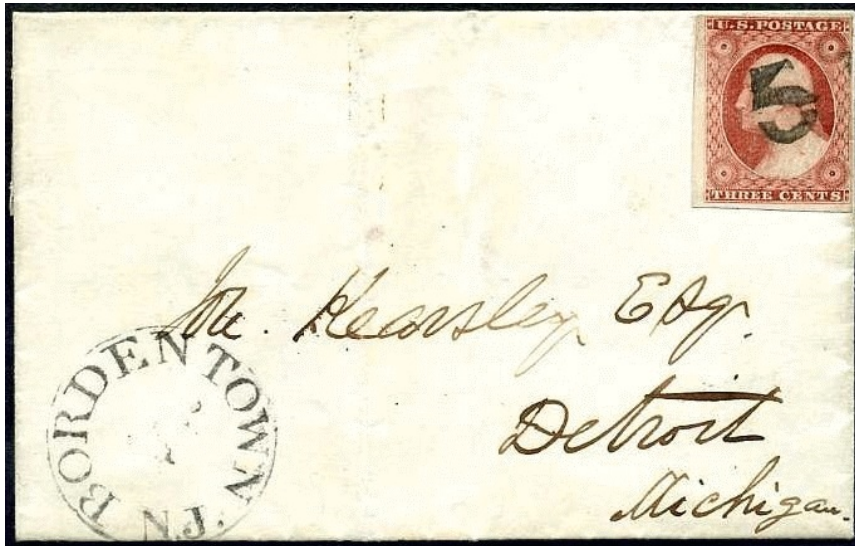 U.S. POSTAGE
5
THREE CENTS
Jon. Kearsley Esqr.
Detroit
Michigan.
BORDENTOWN
N.J.